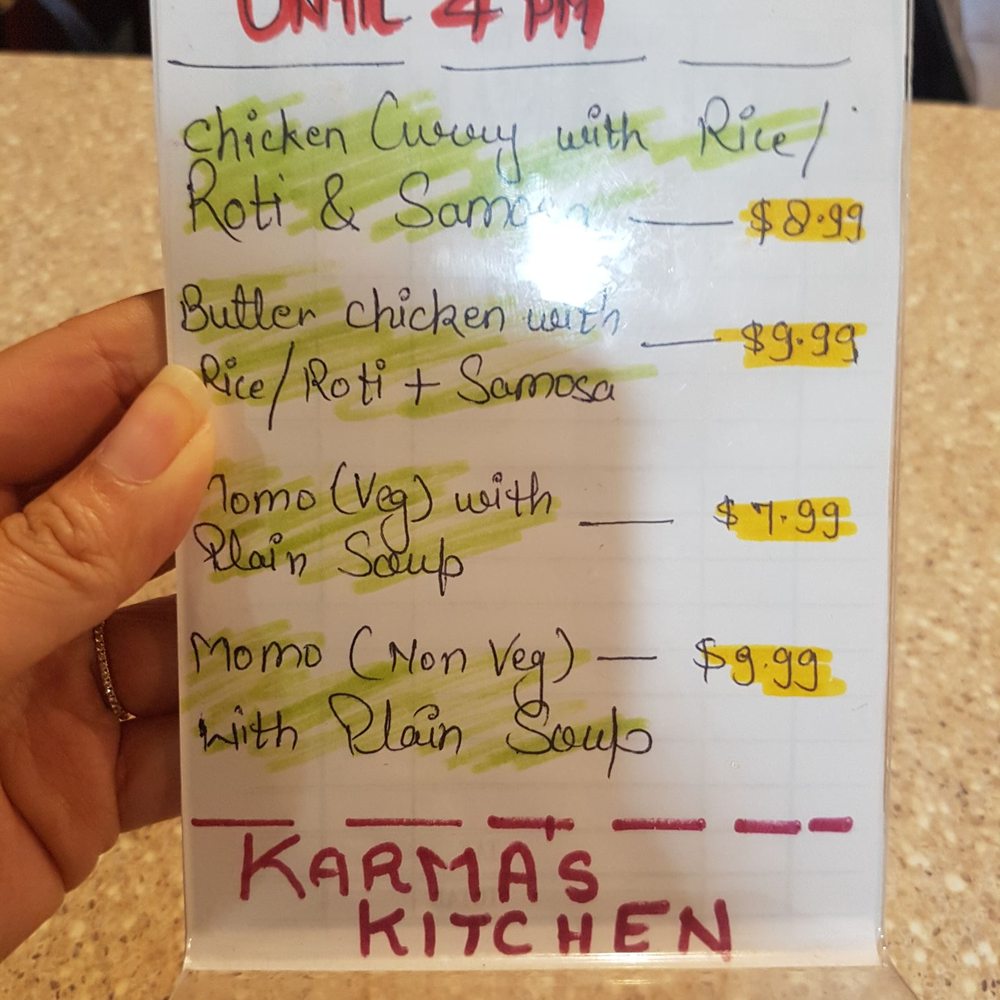 UNTIL 4 PM
Chicken Curry with Rice/
Roti & Samosa — $8.99
Butter chicken with — $9.99
Rice/Roti + Samosa
Momo (Veg) with — $7.99
Plain Soup
Momo (Non Veg) — $9.99
with Plain Soup
KARMA'S
KITCHEN